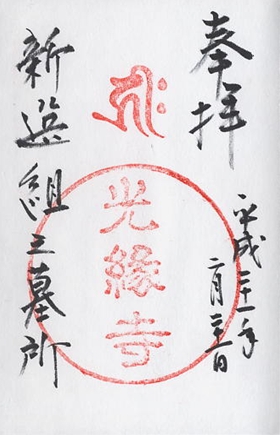 奉拝
平成三十一年
二月
𑖮𑖿𑖨𑖱𑖾
光縁寺
新選組之墓所